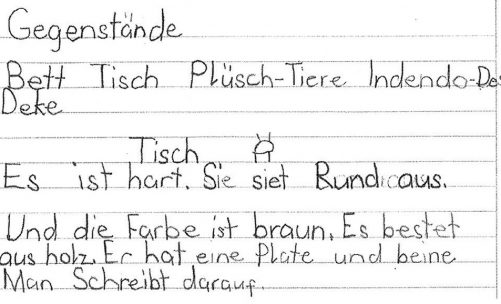 Gegenstände
Bett Tisch Plüsch-Tiere Indendo-Des
Deke
Tisch
Es ist hart. Sie siet Rund aus.
Und die Farbe ist braun. Es bestet
aus holz. Er hat eine Plate und beine
Man Schreibt darauf.